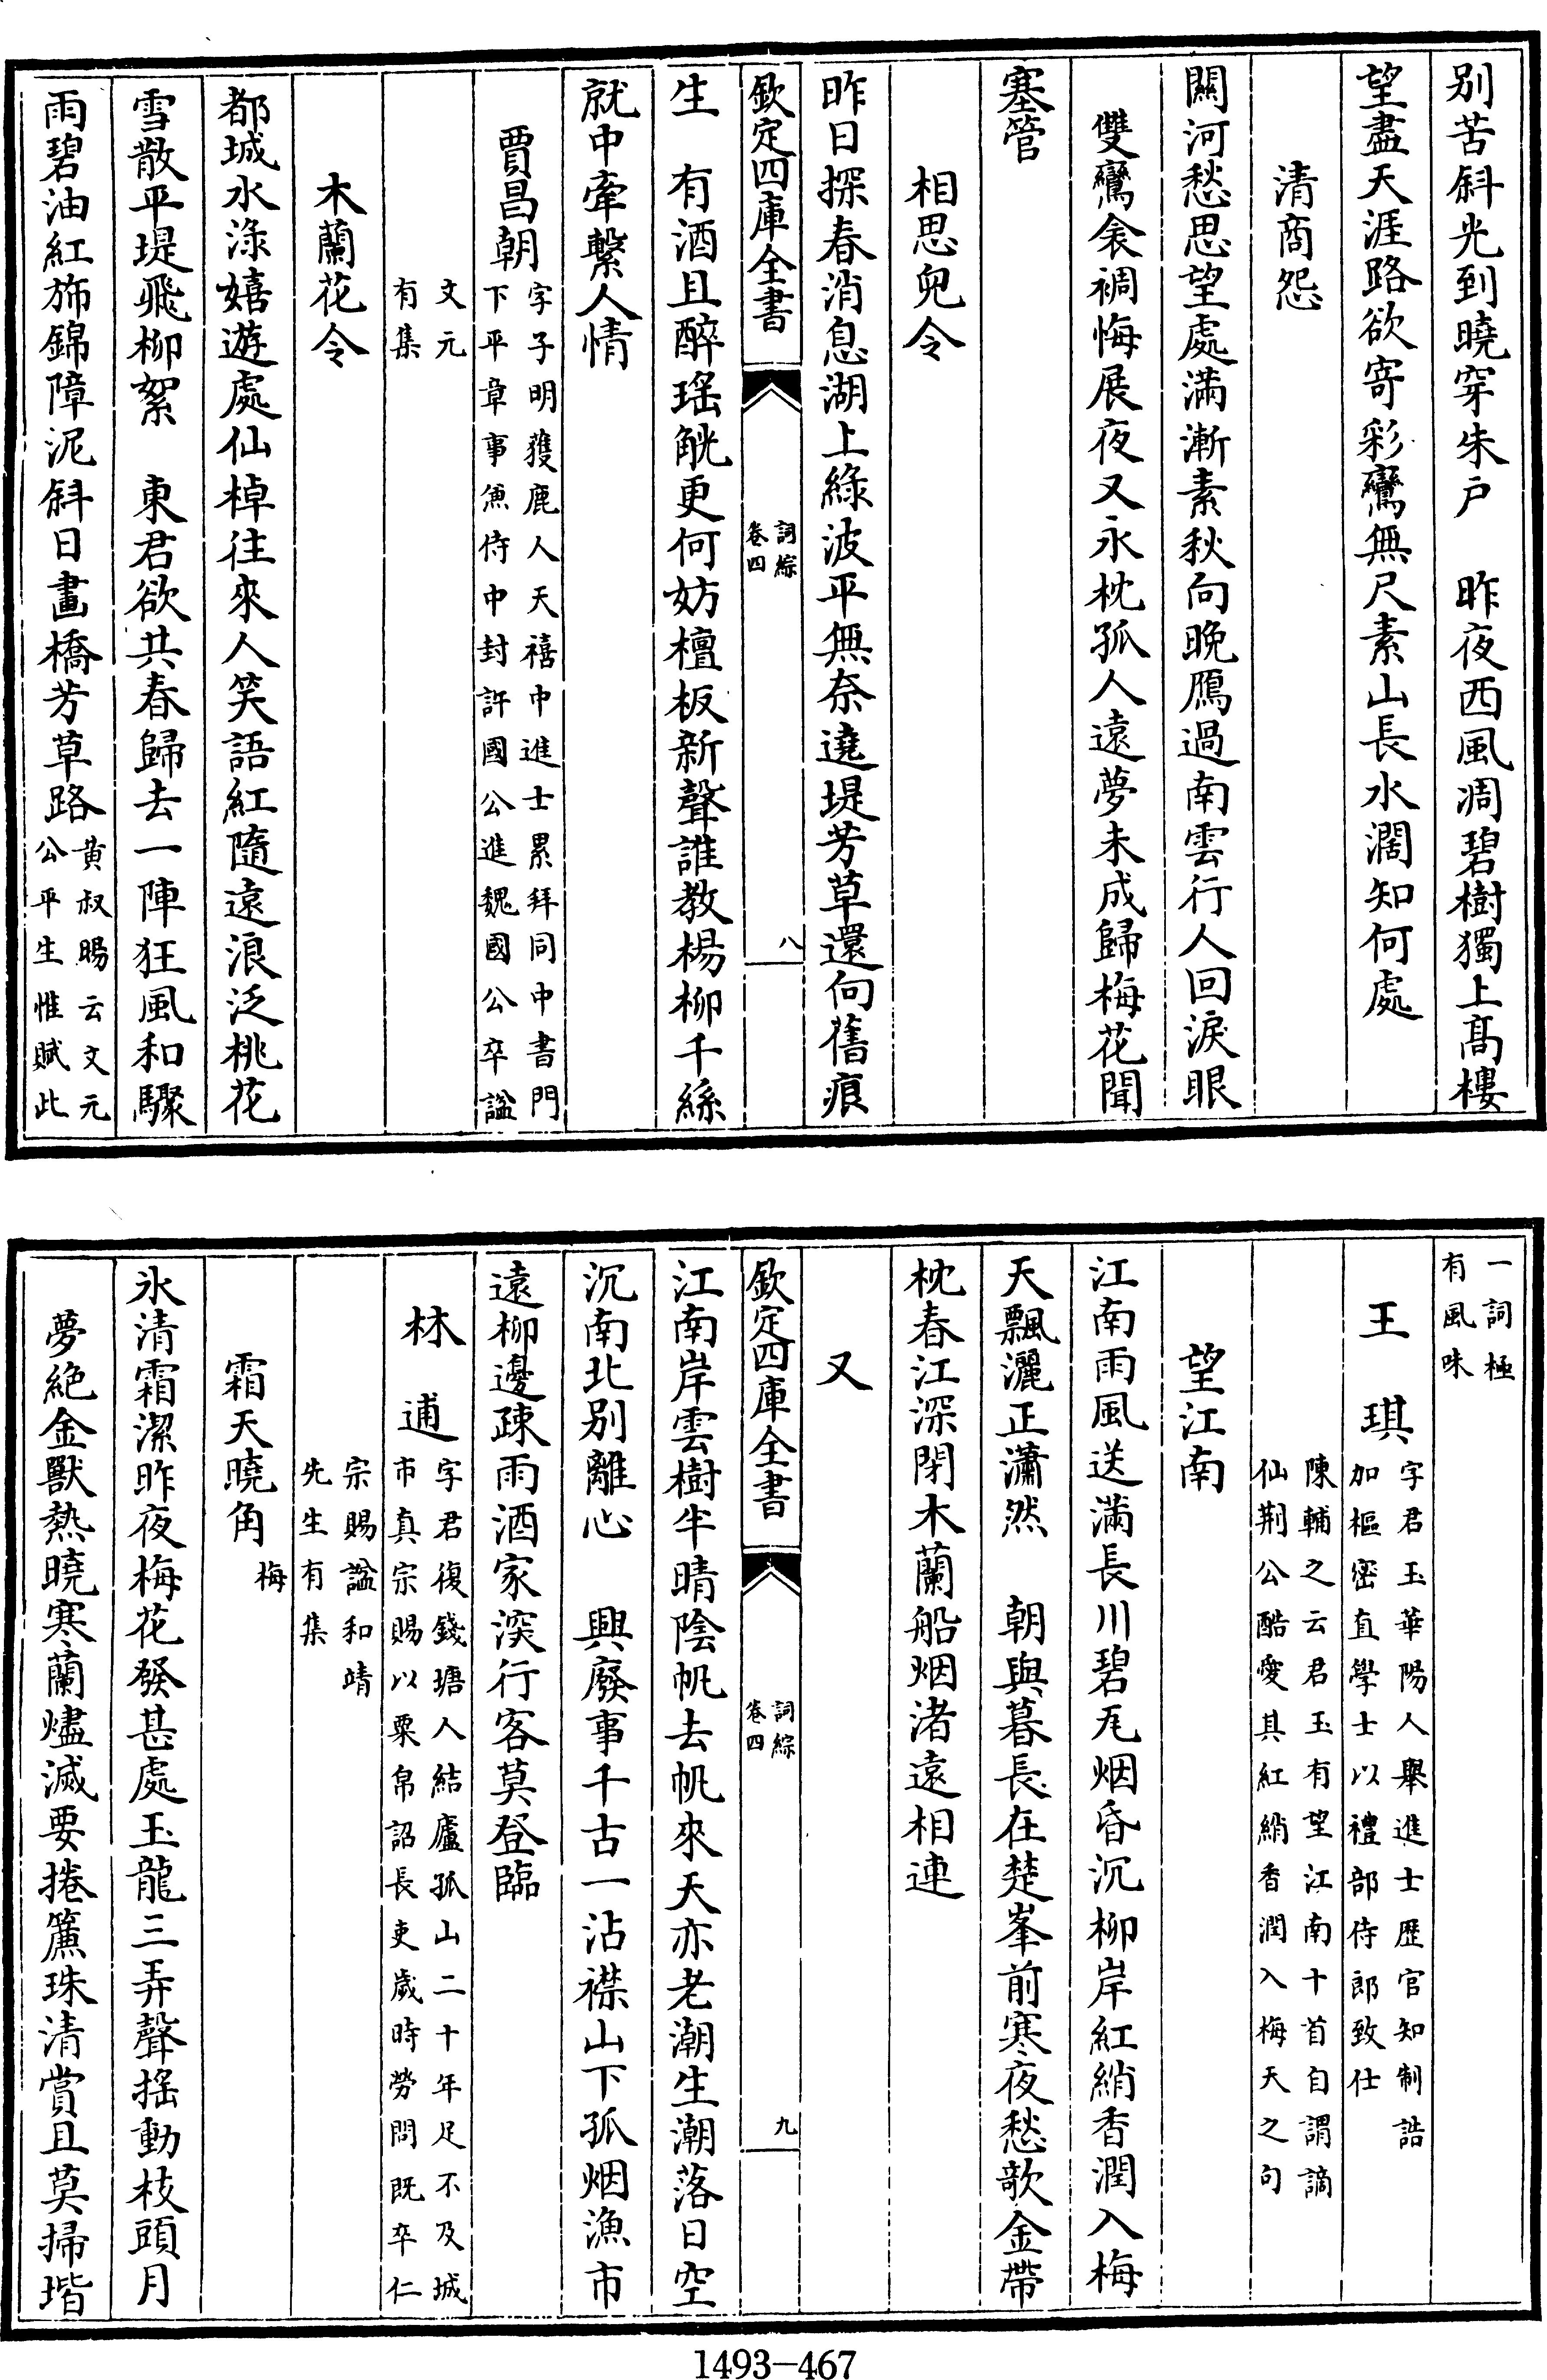 别苦斜光到曉穿朱户　昨夜西風凋碧樹獨上髙樓
望盡天涯路欲寄彩鸞無尺素山長水濶知何處
清商怨
闗河愁思望處滿漸素秋向晚鴈過南雲行人回淚眼
雙鸞衾裯悔展夜又永枕孤人遠夢未成歸梅花聞
塞管
相思兒令
昨日探春消息湖上綠波平無奈遶堤芳草還向舊痕
欽定四庫全書
詞綜
卷四
八
生　有酒且醉瑶觥更何妨檀板新聲誰教楊柳千絲
就中牽繫人情
賈昌朝
字子明獲鹿人天禧中進士累拜同中書門
下平章事兼侍中封許國公進魏國公卒諡
文元
有集
木蘭花令
都城水渌嬉遊處仙棹往來人笑語紅隨遠浪泛桃花
雪散平堤飛柳絮　東君欲共春歸去一陣狂風和驟
雨碧油紅斾錦障泥斜日畫橋芳草路
黄叔暘云文元
公平生惟賦此
一詞極
有風味
王　琪
字君玉華陽人舉進士歴官知制誥
加樞密直學士以禮部侍郎致仕
陳輔之云君玉有望江南十首自謂謫
仙荆公酷愛其紅綃香潤入梅天之句
望江南
江南雨風送滿長川碧瓦烟昏沉柳岸紅綃香潤入梅
天飄灑正瀟然　朝與暮長在楚峯前寒夜愁欹金帶
枕春江深閉木蘭船烟渚遠相連
又
欽定四庫全書
詞綜
卷四
九
江南岸雲樹半晴陰帆去帆來天亦老潮生潮落日空
沉南北别離心　興廢事千古一沾襟山下孤烟漁市
遠柳邊疎雨酒家深行客莫登臨
林　逋
字君復錢塘人結廬孤山二十年足不及城
市真宗賜以粟帛詔長吏歲時勞問既卒仁
宗賜諡和靖
先生有集
霜天曉角
梅
氷清霜潔昨夜梅花發甚處玉龍三弄聲揺動枝頭月
夢絶金獸熱曉寒蘭燼滅要捲簾珠清賞且莫掃堦
1493-467